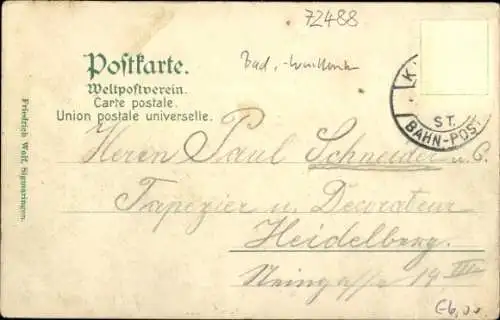 72488
Bad.
Postkarte.
Weltpostverein.
Carte postale.
Union postale universelle.
K.
ST.
BAHN-POS
Friedrich Wolf, Sigmaringen.
Herrn Paul Schneider u. C.
Tapezier u. Decorateur
Heidelberg.
Steingasse 14 III